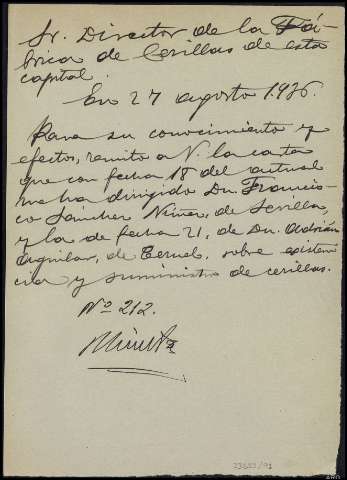 Sr. Director de la Fá-
brica de Cerillas de esta
capital.
En 27 agosto 1936.
Para su conocimiento y
efectos, remito a V. la carta
que con fecha 18 del actual
me ha dirigido Dn. Francis-
co Sánchez Núñez, de Sevilla,
y la de fecha 21, de Dn. Adrián
Aguilar, de Teruel, sobre existen-
cia y suministro de cerillas.
Nº 212.